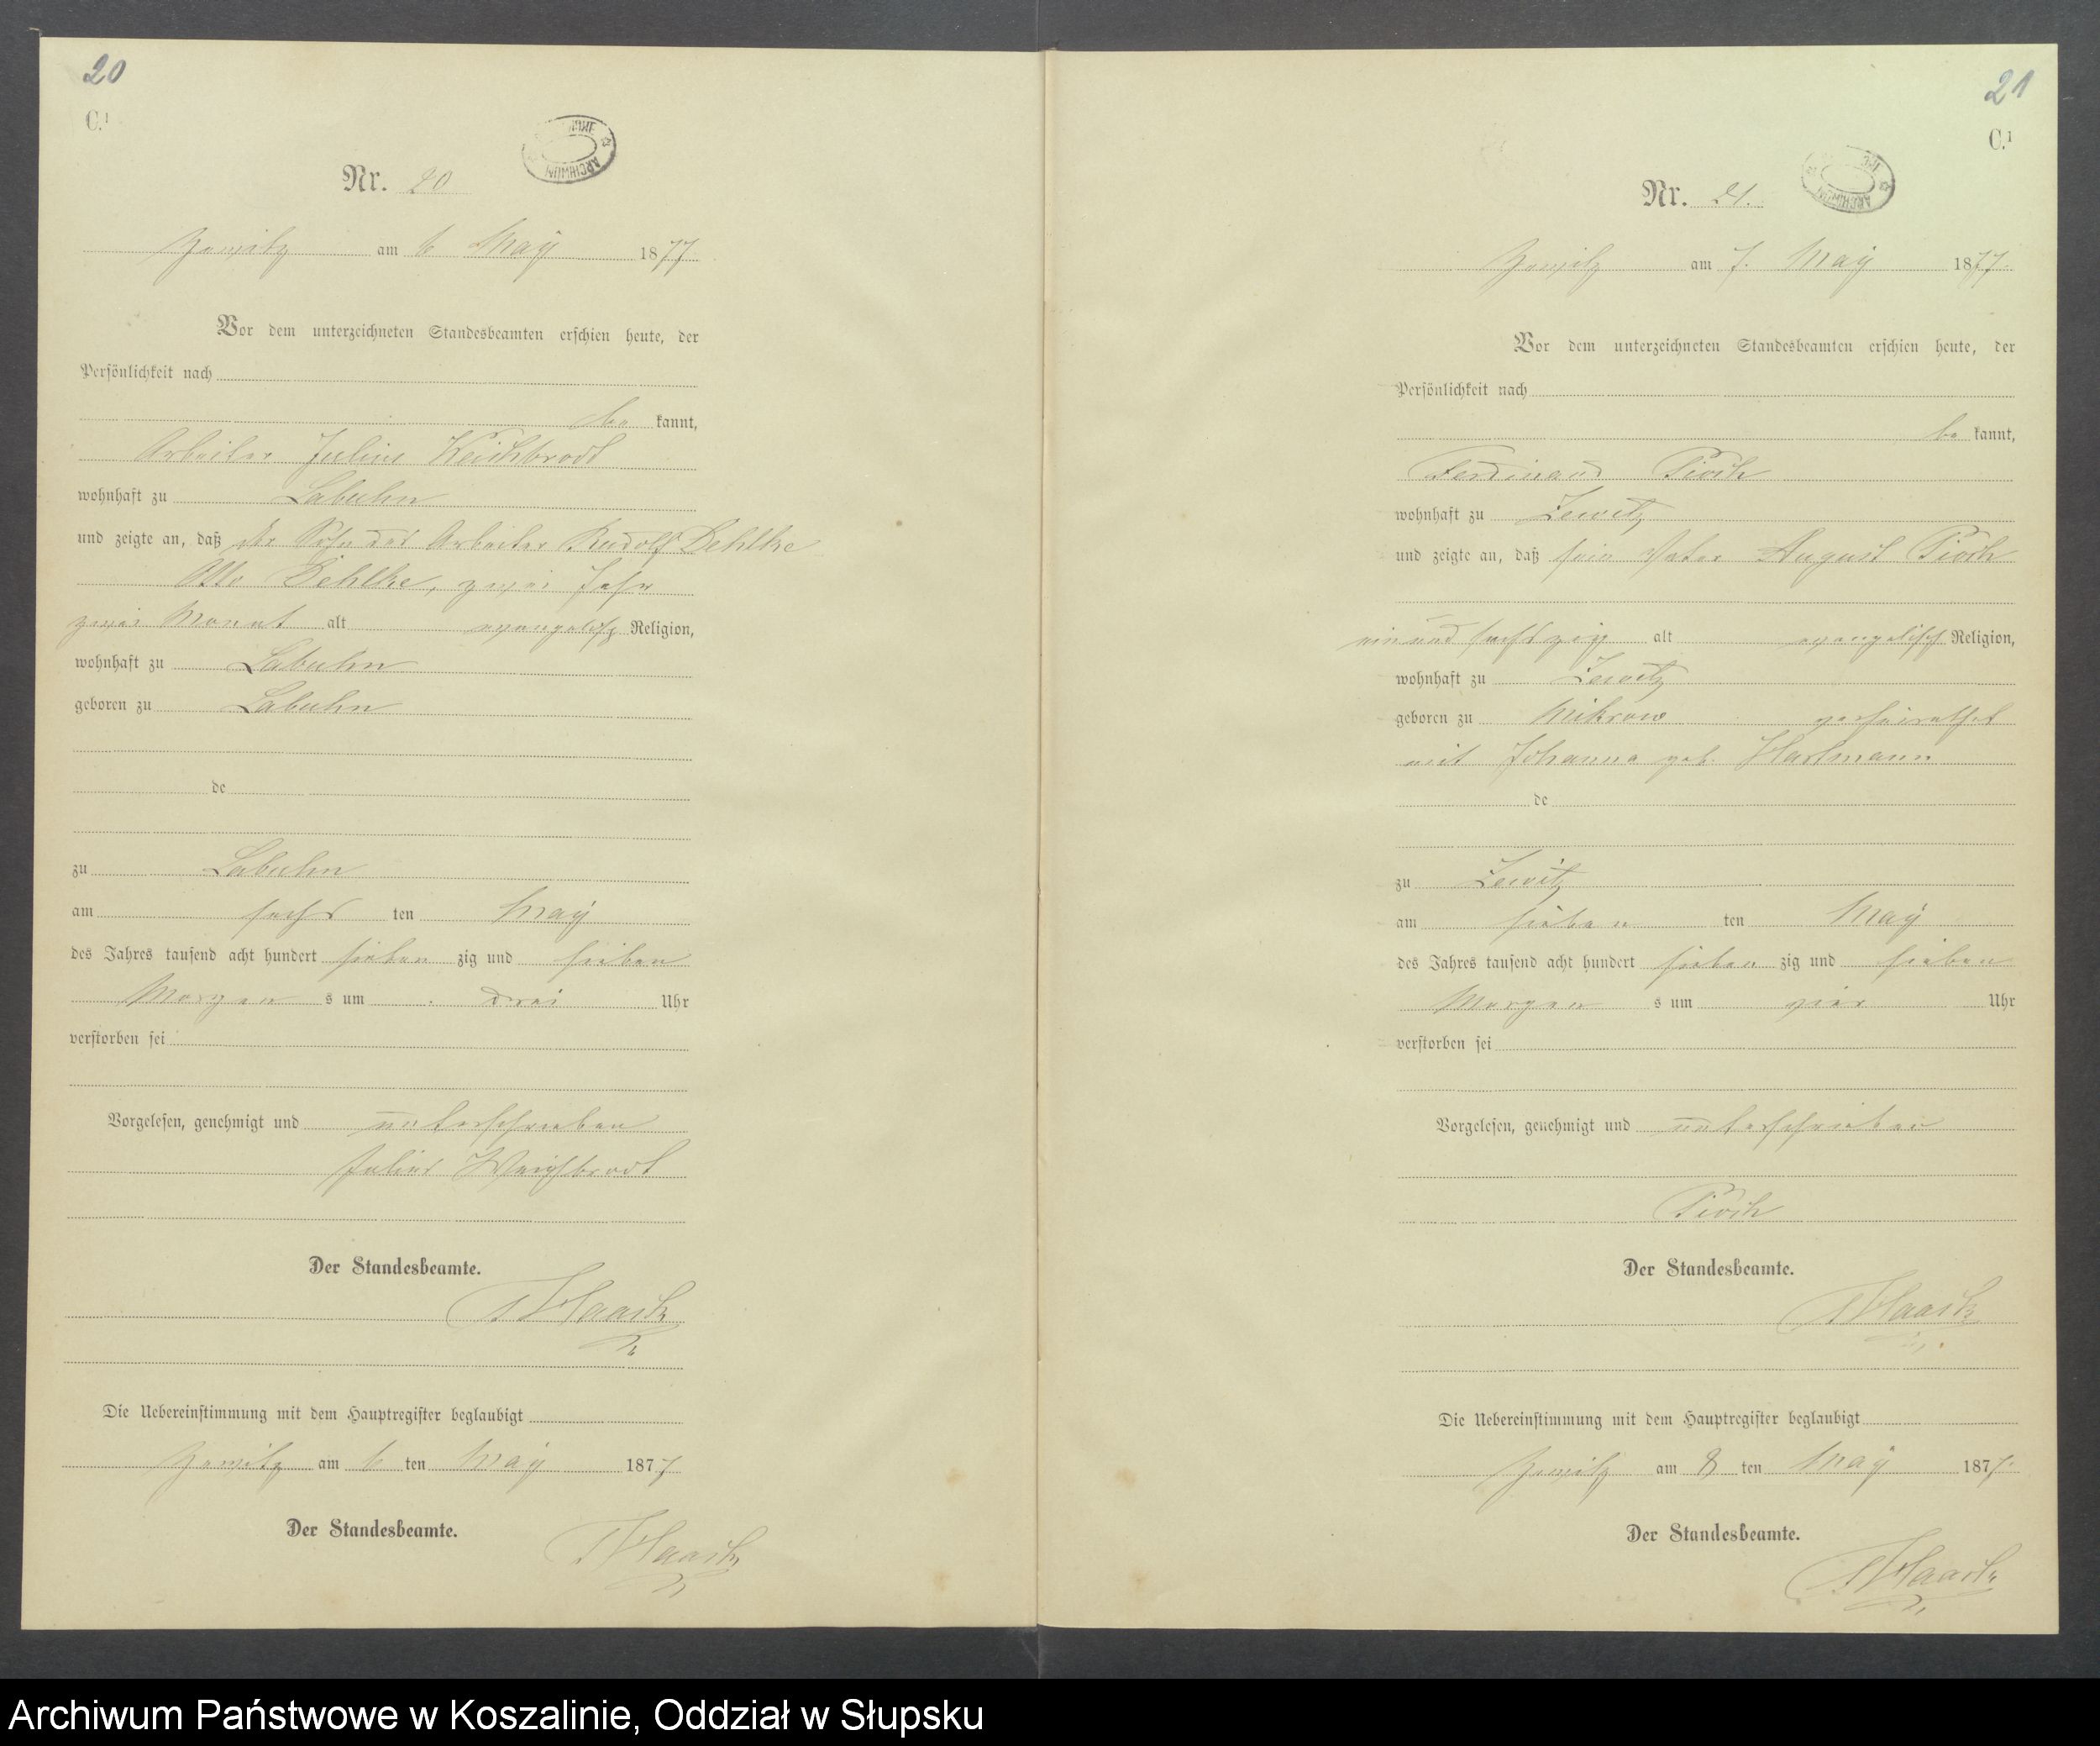 20
C.¹
ARCHIWUM
Nr. 20
Zewitz am 6 May 1877
Vor dem unterzeichneten Standesbeamten erschien heute, der
Persönlichkeit nach
be kannt,
Arbeiter Julius Weichbrodt
wohnhaft zu Labuhn
und zeigte an, daß der Sohn des Arbeiter Rudolf Dehlke
Otto Dehlke, zwei Jahr
zwei Monat alt evangelisch Religion,
wohnhaft zu Labuhn
geboren zu Labuhn
de
zu Labuhn
am sechs ten May
des Jahres tausend acht hundert sieben zig und sieben
Morgen s um drei Uhr
verstorben sei
Vorgelesen, genehmigt und unterschrieben
Julius Weichbrodt
Der Standesbeamte.
Haack
Die Uebereinstimmung mit dem Hauptregister beglaubigt
Zewitz am 6 ten May 1877
Der Standesbeamte.
Haack
21
C.¹
ARCHIWUM
Nr. 21.
Zewitz am 7. May 1877.
Vor dem unterzeichneten Standesbeamten erschien heute, der
Persönlichkeit nach
be kannt,
Ferdinand Pioch
wohnhaft zu Zewitz
und zeigte an, daß sein Vater August Pioch
ein und sechszig alt evangelisch Religion,
wohnhaft zu Zewitz
geboren zu Mikrow verheirathet
mit Johanna geb. Hartmann
de
zu Zewitz
am sieben ten May
des Jahres tausend acht hundert sieben zig und sieben
Morgen s um vier Uhr
verstorben sei
Vorgelesen, genehmigt und unterschrieben
Pioch
Der Standesbeamte.
Haack
Die Uebereinstimmung mit dem Hauptregister beglaubigt
Zewitz am 8 ten May 1877.
Der Standesbeamte.
Haack
Archiwum Państwowe w Koszalinie, Oddział w Słupsku